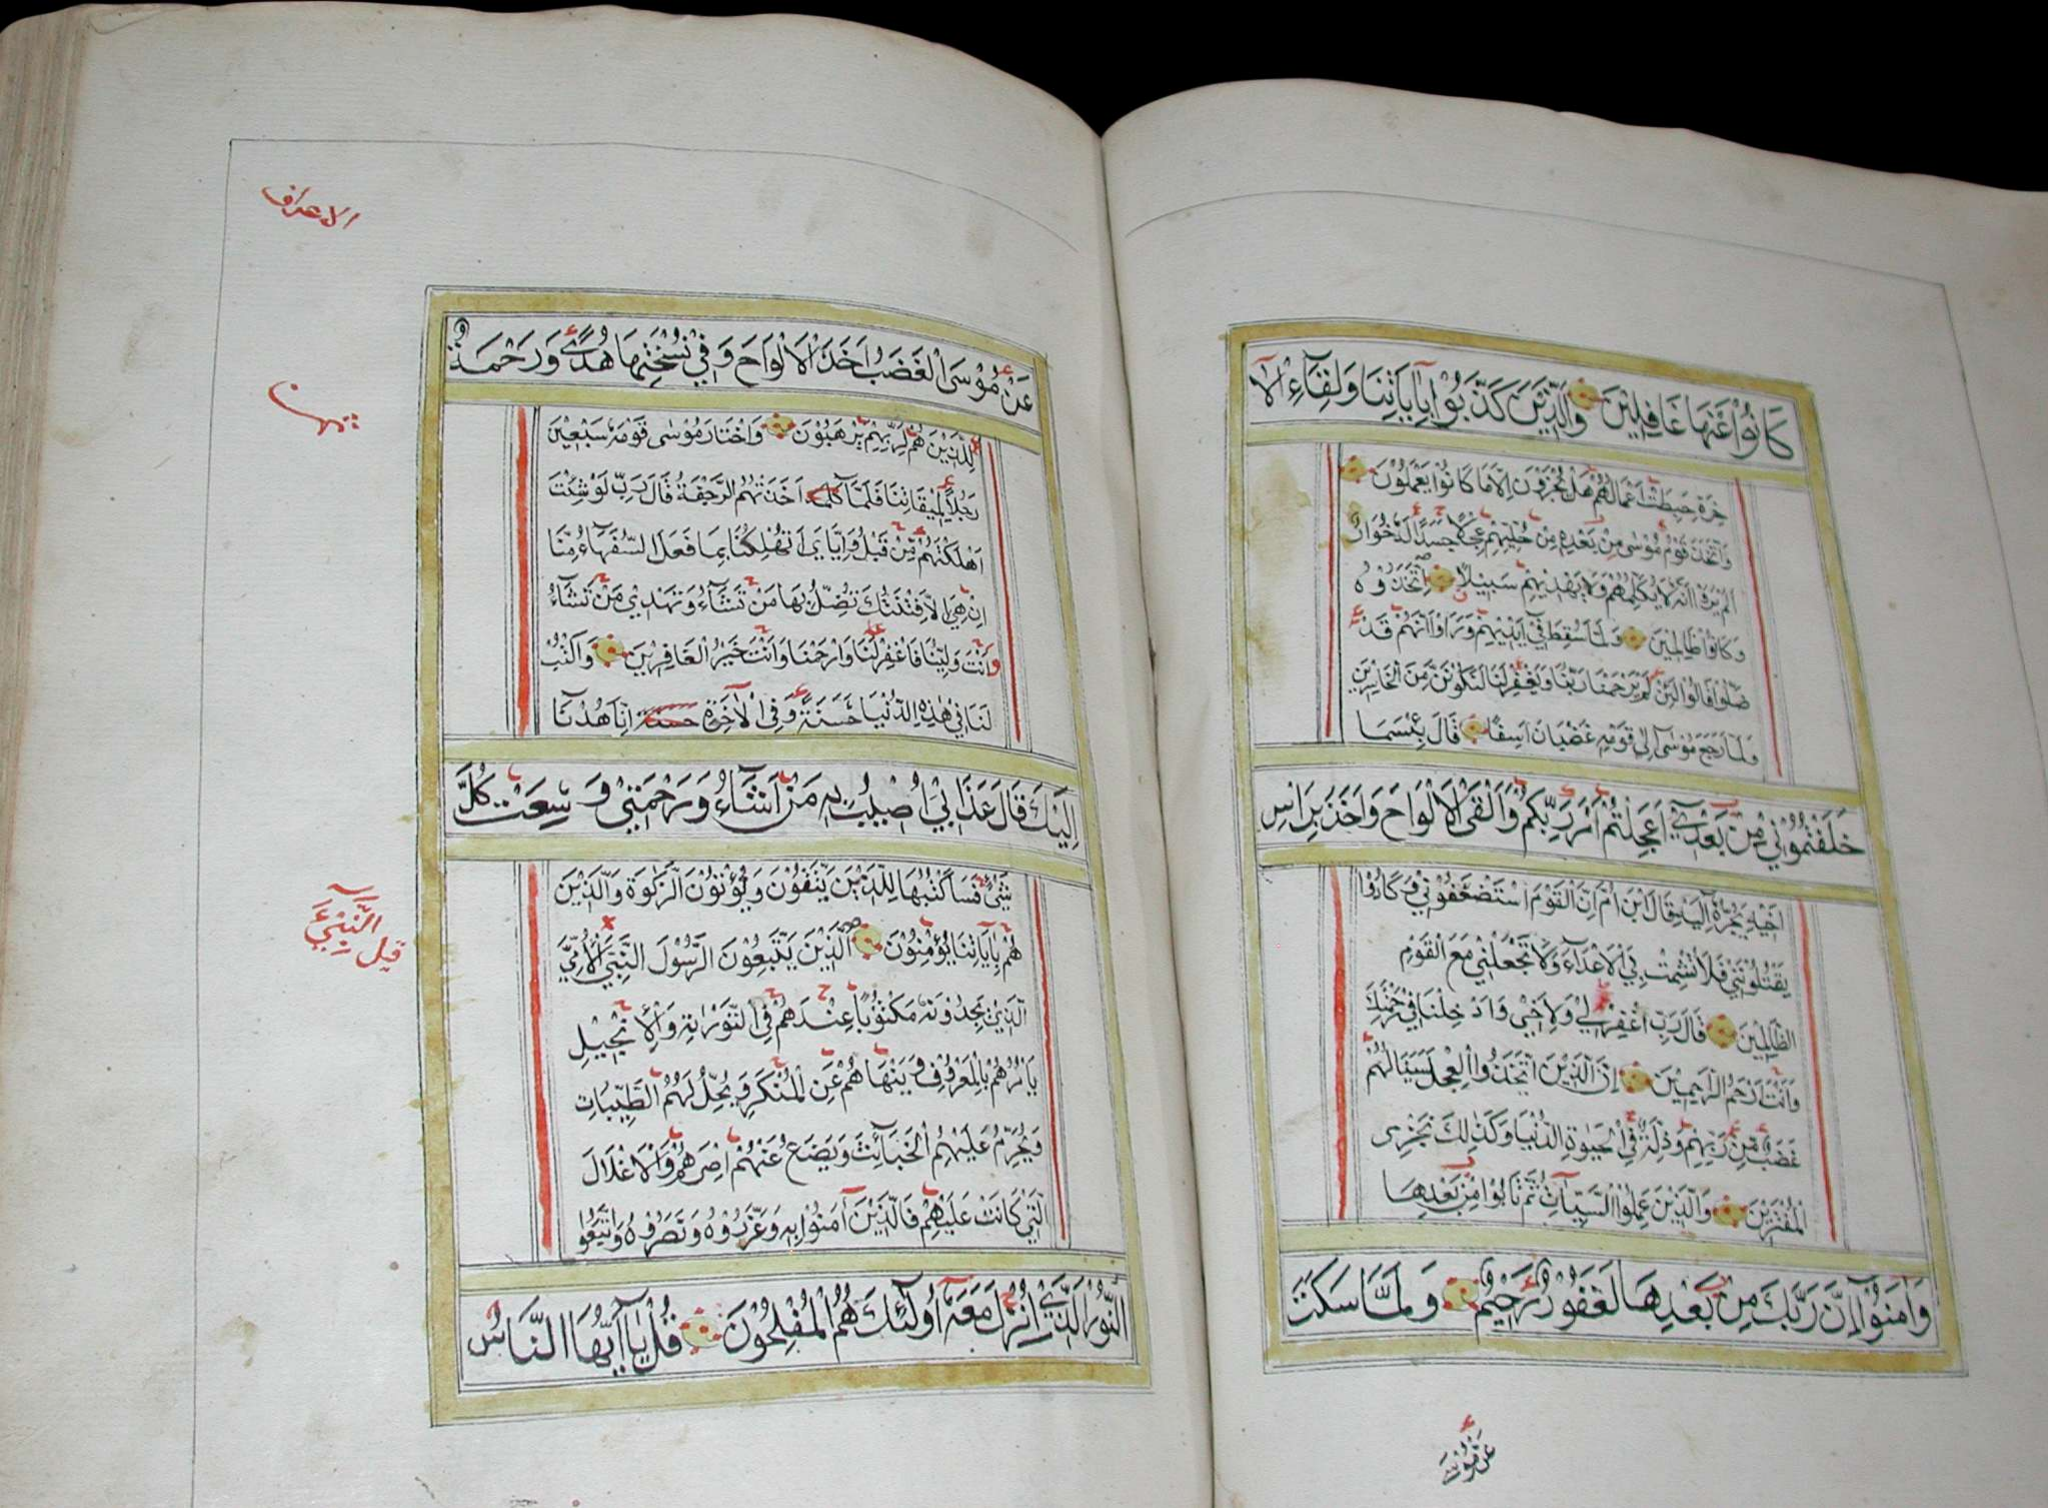 كَانُوا عَنْهَا غَافِلِينَ وَالَّذِينَ كَذَّبُوا بِآيَاتِنَا وَلِقَاءِ الْآ
خِرَةِ حَبِطَتْ أَعْمَالُهُمْ هَلْ يُجْزَوْنَ إِلَّا مَا كَانُوا يَعْمَلُونَ
وَاتَّخَذَ قَوْمُ مُوسَى مِنْ بَعْدِهِ مِنْ حُلِيِّهِمْ عِجْلًا جَسَدًا لَهُ خُوَارٌ
أَلَمْ يَرَوْا أَنَّهُ لَا يُكَلِّمُهُمْ وَلَا يَهْدِيهِمْ سَبِيلًا اتَّخَذُوهُ
وَكَانُوا ظَالِمِينَ وَلَمَّا سُقِطَ فِي أَيْدِيهِمْ وَرَأَوْا أَنَّهُمْ قَدْ
ضَلُّوا قَالُوا لَئِنْ لَمْ يَرْحَمْنَا رَبُّنَا وَيَغْفِرْ لَنَا لَنَكُونَنَّ مِنَ الْخَاسِرِينَ
وَلَمَّا رَجَعَ مُوسَى إِلَى قَوْمِهِ غَضْبَانَ أَسِفًا قَالَ بِئْسَمَا
خَلَفْتُمُونِي مِنْ بَعْدِي أَعَجِلْتُمْ أَمْرَ رَبِّكُمْ وَأَلْقَى الْأَلْوَاحَ وَأَخَذَ بِرَأْسِ
أَخِيهِ يَجُرُّهُ إِلَيْهِ قَالَ ابْنَ أُمَّ إِنَّ الْقَوْمَ اسْتَضْعَفُونِي وَكَادُوا
يَقْتُلُونَنِي فَلَا تُشْمِتْ بِيَ الْأَعْدَاءَ وَلَا تَجْعَلْنِي مَعَ الْقَوْمِ
الظَّالِمِينَ قَالَ رَبِّ اغْفِرْ لِي وَلِأَخِي وَأَدْخِلْنَا فِي رَحْمَتِكَ
وَأَنْتَ أَرْحَمُ الرَّاحِمِينَ إِنَّ الَّذِينَ اتَّخَذُوا الْعِجْلَ سَيَنَالُهُمْ
غَضَبٌ مِنْ رَبِّهِمْ وَذِلَّةٌ فِي الْحَيَوةِ الدُّنْيَا وَكَذَلِكَ نَجْزِي
الْمُفْتَرِينَ وَالَّذِينَ عَمِلُوا السَّيِّئَاتِ ثُمَّ تَابُوا مِنْ بَعْدِهَا
وَآمَنُوا إِنَّ رَبَّكَ مِنْ بَعْدِهَا لَغَفُورٌ رَحِيمٌ وَلَمَّا سَكَتَ
الاعراف
عَنْ مُوسَى الْغَضَبُ أَخَذَ الْأَلْوَاحَ وَفِي نُسْخَتِهَا هُدًى وَرَحْمَةٌ
لِلَّذِينَ هُمْ لِرَبِّهِمْ يَرْهَبُونَ وَاخْتَارَ مُوسَى قَوْمَهُ سَبْعِينَ
رَجُلًا لِمِيقَاتِنَا فَلَمَّا أَخَذَتْهُمُ الرَّجْفَةُ قَالَ رَبِّ لَوْ شِئْتَ
أَهْلَكْتَهُمْ مِنْ قَبْلُ وَإِيَّايَ أَتُهْلِكُنَا بِمَا فَعَلَ السُّفَهَاءُ مِنَّا
إِنْ هِيَ إِلَّا فِتْنَتُكَ تُضِلُّ بِهَا مَنْ تَشَاءُ وَتَهْدِي مَنْ تَشَاءُ
أَنْتَ وَلِيُّنَا فَاغْفِرْ لَنَا وَارْحَمْنَا وَأَنْتَ خَيْرُ الْغَافِرِينَ وَاكْتُبْ
لَنَا فِي هَذِهِ الدُّنْيَا حَسَنَةً وَفِي الْآخِرَةِ إِنَّا هُدْنَا
إِلَيْكَ قَالَ عَذَابِي أُصِيبُ بِهِ مَنْ أَشَاءُ وَرَحْمَتِي وَسِعَتْ كُلَّ
شَيْءٍ فَسَأَكْتُبُهَا لِلَّذِينَ يَتَّقُونَ وَيُؤْتُونَ الزَّكَوةَ وَالَّذِينَ
هُمْ بِآيَاتِنَا يُؤْمِنُونَ الَّذِينَ يَتَّبِعُونَ الرَّسُولَ النَّبِيَّ الْأُمِّيَّ
الَّذِي يَجِدُونَهُ مَكْتُوبًا عِنْدَهُمْ فِي التَّوْرَايةِ وَالْإِنْجِيلِ
يَأْمُرُهُمْ بِالْمَعْرُوفِ وَيَنْهَاهُمْ عَنِ الْمُنْكَرِ وَيُحِلُّ لَهُمُ الطَّيِّبَاتِ
وَيُحَرِّمُ عَلَيْهِمُ الْخَبَائِثَ وَيَضَعُ عَنْهُمْ إِصْرَهُمْ وَالْأَغْلَالَ
الَّتِي كَانَتْ عَلَيْهِمْ فَالَّذِينَ آمَنُوا بِهِ وَعَزَّرُوهُ وَنَصَرُوهُ وَاتَّبَعُوا
النُّورَ الَّذِي أُنْزِلَ مَعَهُ أُولَئِكَ هُمُ الْمُفْلِحُونَ قُلْ يَا أَيُّهَا النَّاسُ